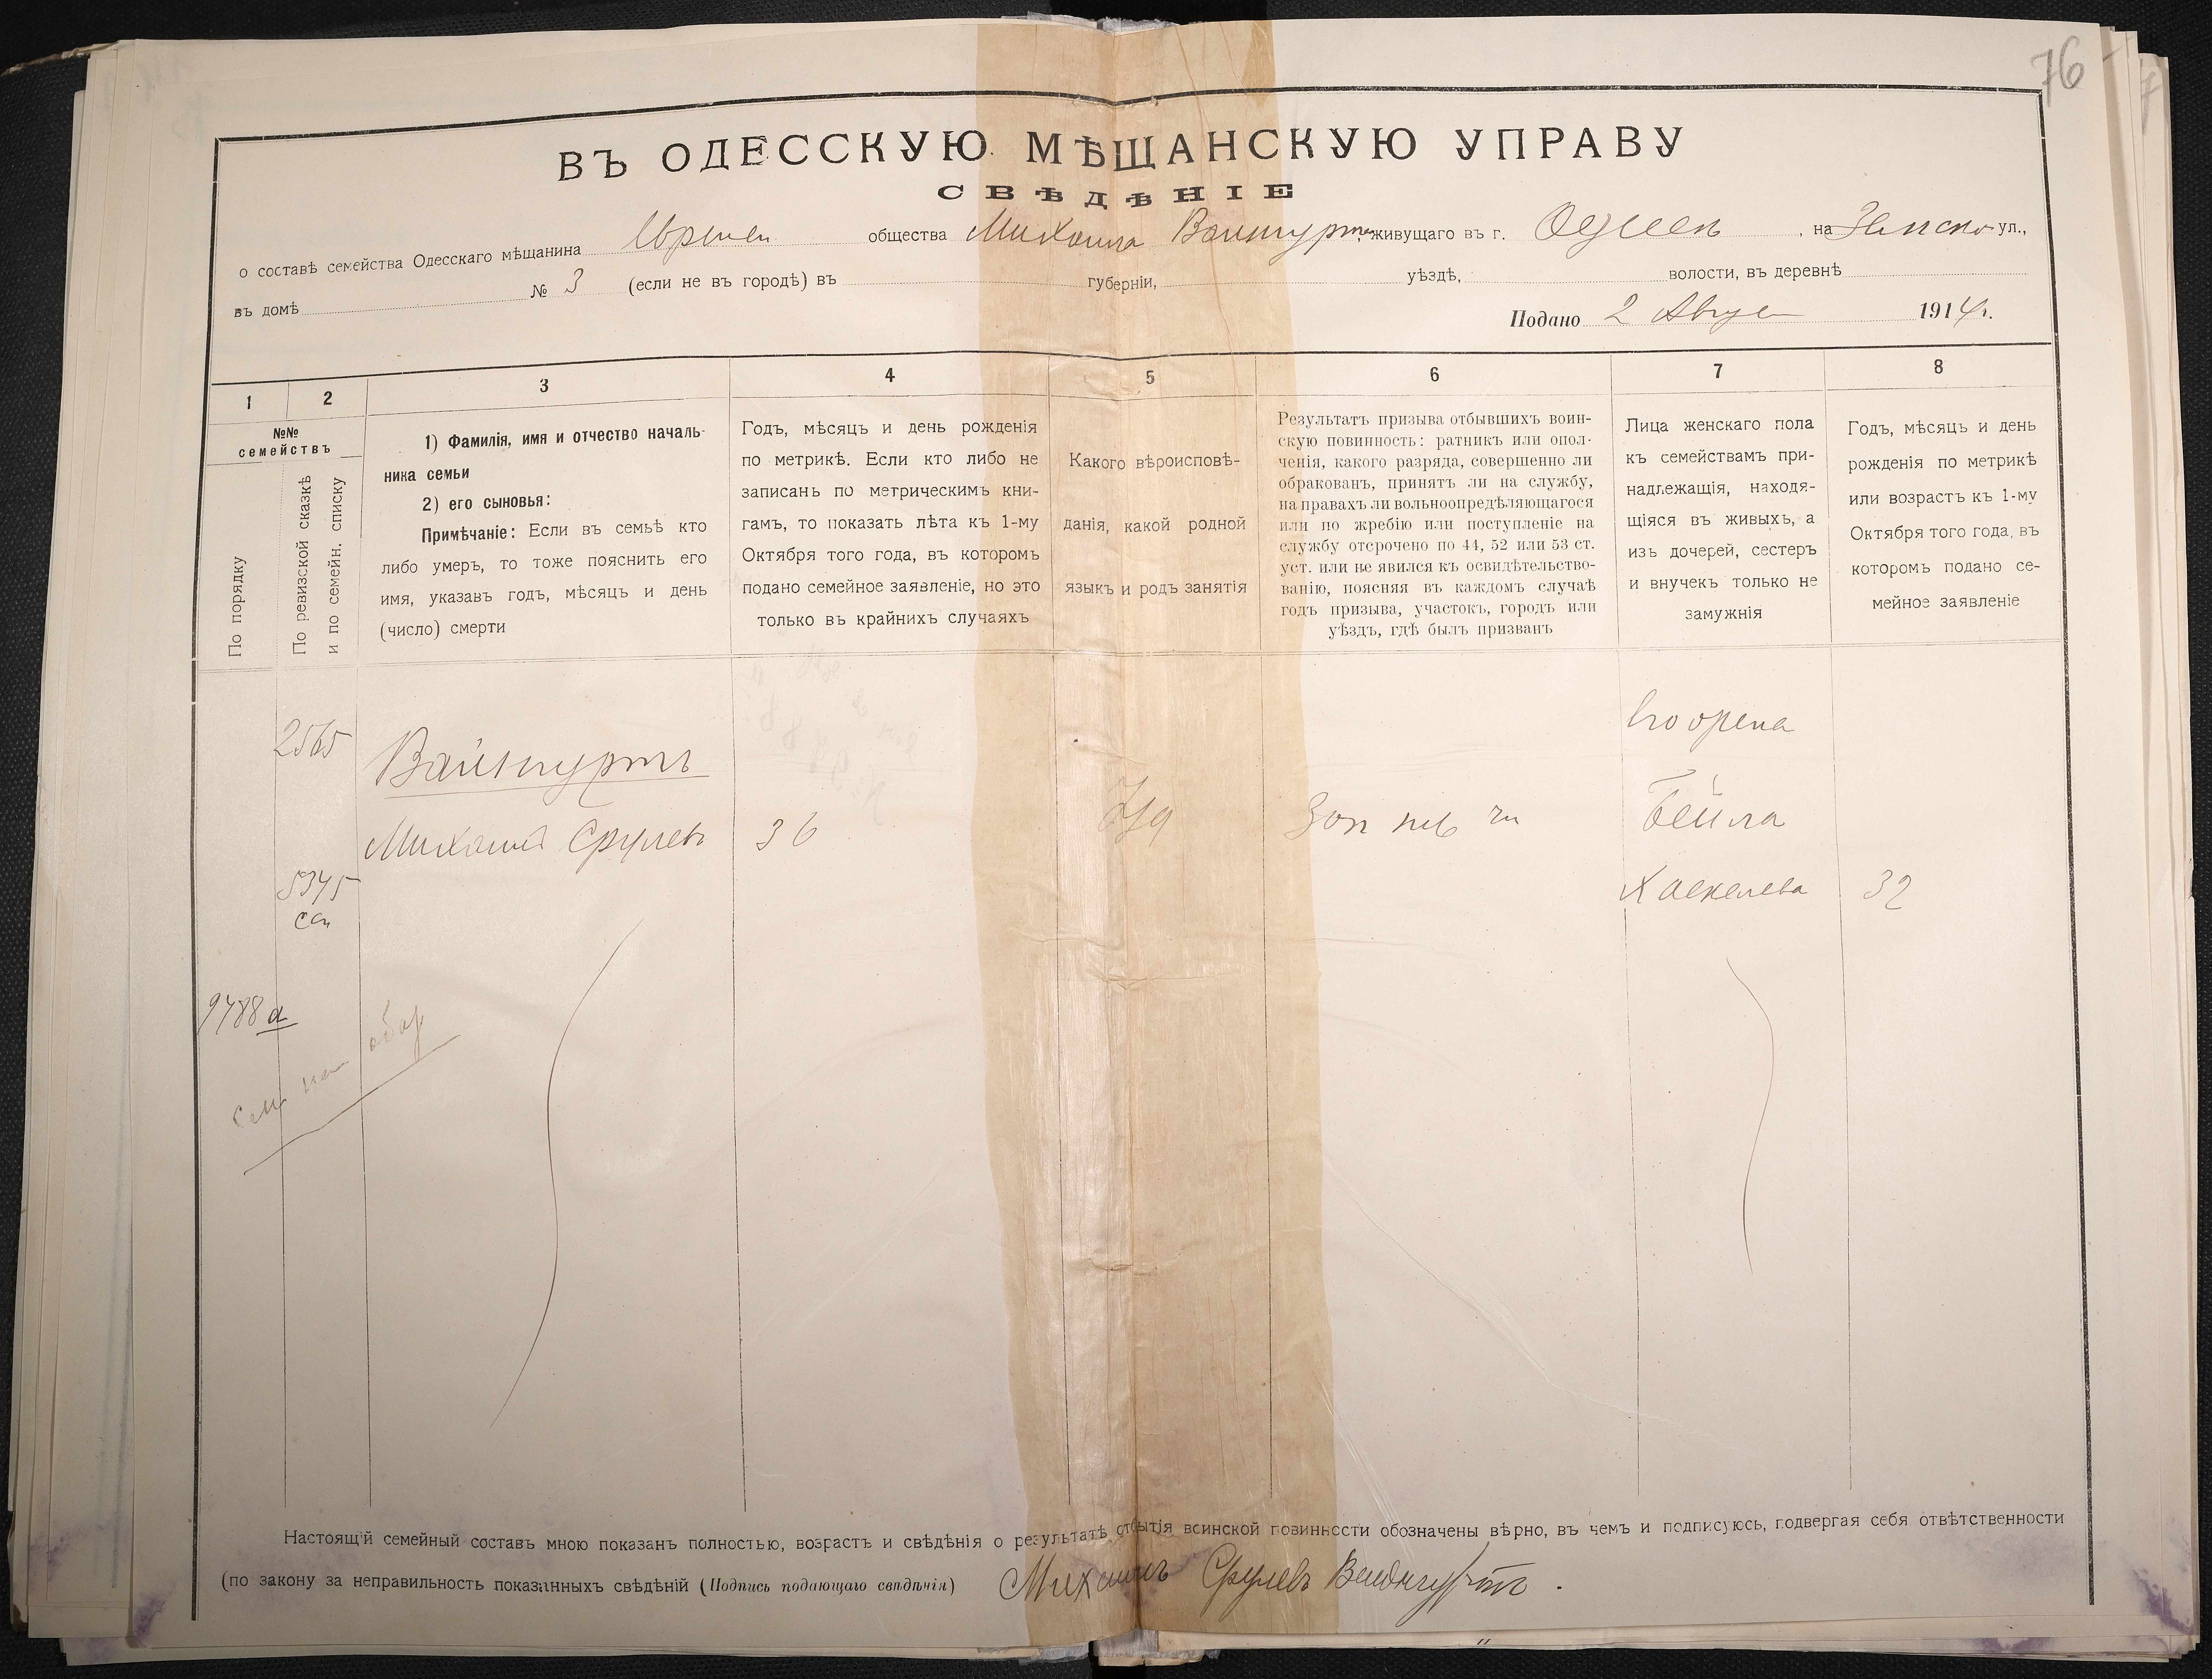 76
ВЪ ОДЕССКУЮ МѢЩАНСКУЮ УПРАВУ
СВѢДѢНІЕ
о составѣ семейства Одесскаго мѣщанина общества Михаила Вайнгурта живущаго въ г. Одессѣ, на ул.,
въ домѣ № 3 (если не въ городѣ) въ губерніи, уѣздѣ, волости, въ деревнѣ
Подано 2 Авгус 1914 г.
1 2 3 4 5 6 7 8
№№ семействъ
По порядку
По ревизской сказкѣ
и по семейн. списку
1) Фамилія, имя и отчество началь-
ника семьи
2) его сыновья:
Примѣчаніе: Если въ семьѣ кто
либо умеръ, то тоже пояснить его
имя, указавъ годъ, мѣсяцъ и день
(число) смерти
Годъ, мѣсяцъ и день рожденія
по метрикѣ. Если кто либо не
записанъ по метрическимъ кни-
гамъ, то показать лѣта къ 1-му
Октября того года, въ которомъ
подано семейное заявленіе, но это
только въ крайнихъ случаяхъ
Какого вѣроисповѣ-
данія, какой родной
языкъ и родъ занятія
Результатъ призыва отбывшихъ воин-
скую повинность: ратникъ или опол-
ченія, какого разряда, совершенно ли
обракованъ, принятъ ли на службу,
на правахъ ли вольноопредѣляющагося
или по жребію или поступленіе на
службу отсрочено по 44, 52 или 53 ст.
уст. или не явился къ освидѣтельство-
ванію, поясняя въ каждомъ случаѣ
годъ призыва, участокъ, городъ или
уѣздъ, гдѣ былъ призванъ
Лица женскаго пола
къ семействамъ при-
надлежащія, находя-
щіяся въ живыхъ, а
изъ дочерей, сестеръ
и внучекъ только не
замужнія
Годъ, мѣсяцъ и день
рожденія по метрикѣ
или возрастъ къ 1-му
Октября того года, въ
которомъ подано се-
мейное заявленіе
2565
Вайнгуртъ
Его жена
Михаилъ Срулевъ 36 Іуд Зап
Бейла
5345
Хаскелева 32
9788 а
Настоящій семейный составъ мною показанъ полностью, возрастъ и свѣдѣнія о результатѣ отбытія воинской повинности обозначены вѣрно, въ чемъ и подписуюсь, подвергая себя отвѣтственности
(по закону за неправильность показанныхъ свѣдѣній (Подпись подающаго свѣдѣнія) Михаилъ Срулевъ Вайнгуртъ.